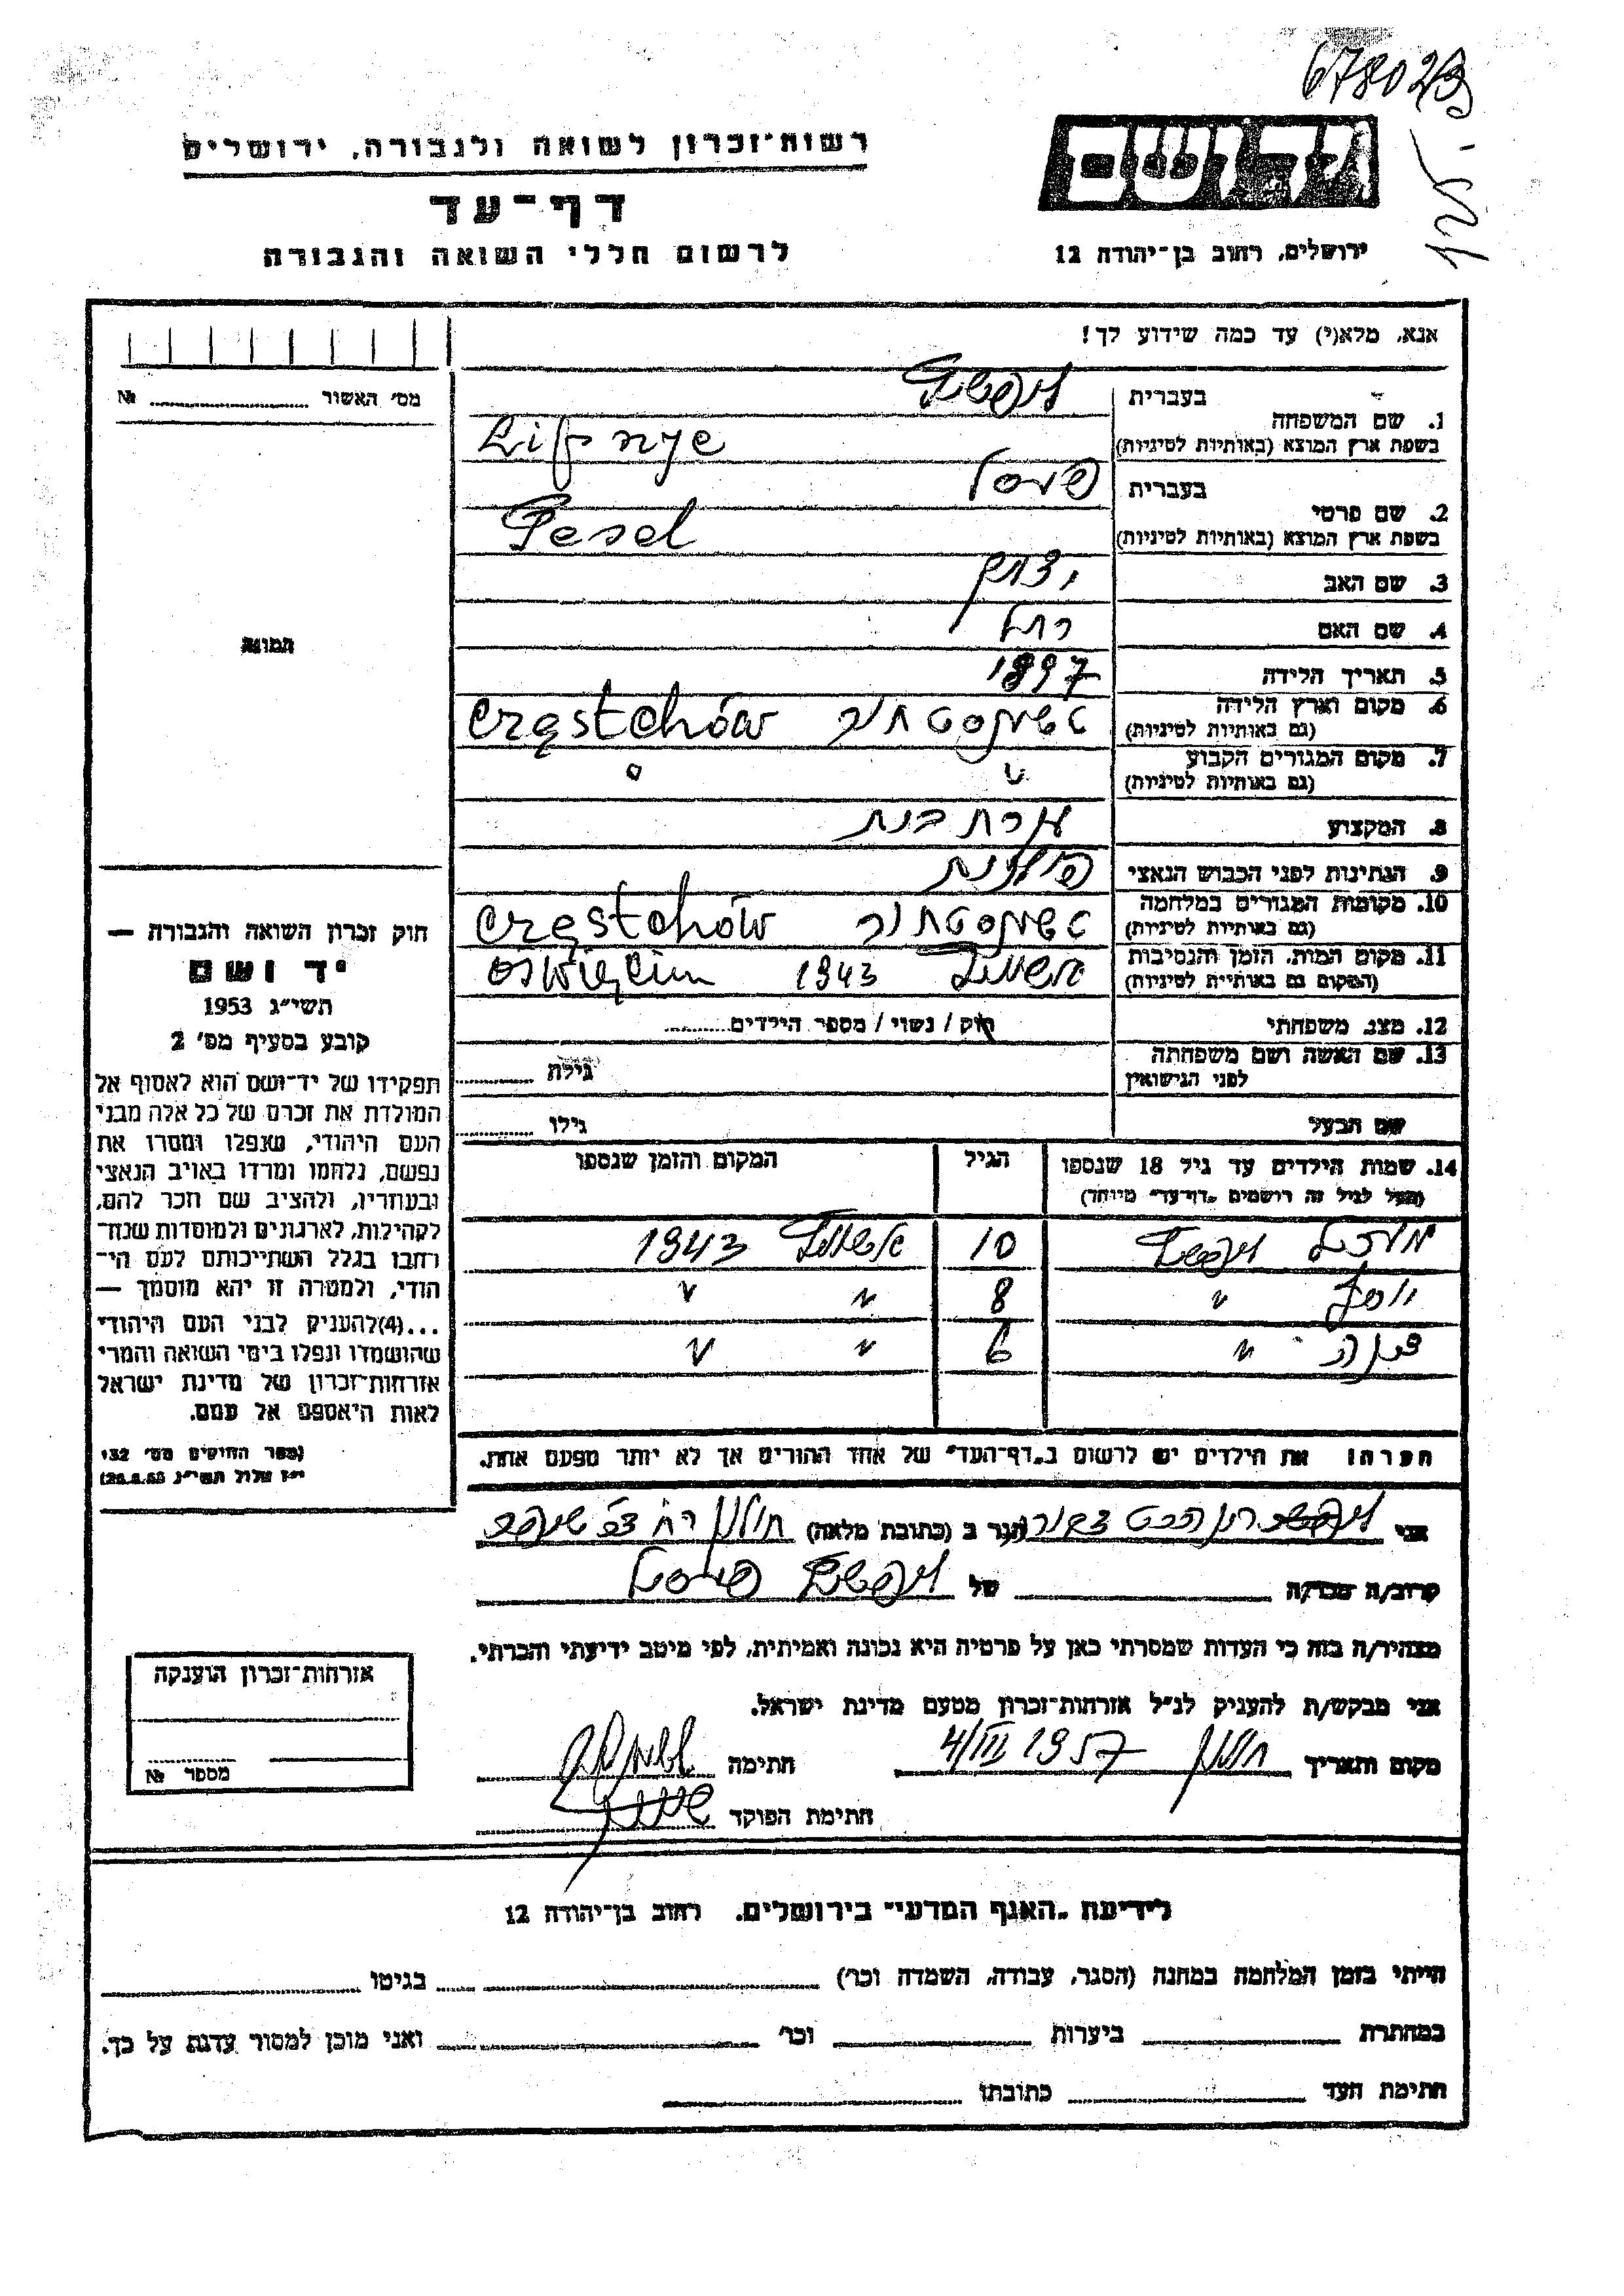 678023
125.
רשות־זכרון לשואה ולגבורה, ירושלים
דף־עד
לרשום חללי השואה והגבורה
יד ושם
ירושלים, רחוב בן־יהודה 12
אנא, מלא(י) עד כמה שידוע לך!
מס׳ האשור № 
1. שם המשפחה
בעברית
בשפת ארץ המוצא (באותיות לטיניות) Lifszyc
2. שם פרטי
בעברית פייסל
בשפת ארץ המוצא (באותיות לטיניות) Pesel
3. שם האב יצחק
4. שם האם רחל
5. תאריך הלידה 1897
6. מקום וארץ הלידה
(גם באותיות לטיניות) טשענסטחוב Częstchów
7. מקום המגורים הקבוע
(גם באותיות לטיניות) " "
8. המקצוע עקרת בית
9. הנתינות לפני הכבוש הנאצי פולנית
10. מקומות המגורים במלחמה
(גם באותיות לטיניות) טשענסטחוב Częstchów
11. מקום המות, הזמן והנסיבות
(המקום גם באותיות לטיניות) 1943 Oświęcim
12. מצב משפחתי רוק / נשוי / מספר הילדים
13. שם האשה ושם משפחתה
לפני הנישואין
גילה
שם הבעל
גילו
14. שמות הילדים עד גיל 18 שנספו
(מעל לגיל זה רושמים „דף־עד" מיוחד)
הגיל
המקום והזמן שנספו
10 1943
יוסף " 8 " "
" 6 " "
הערה: את הילדים יש לרשום ב„דף־העד" של אחד ההורים אך לא יותר מפעם אחת.
התמונה
חוק זכרון השואה והגבורה —
יד ושם
תשי״ג 1953
קובע בסעיף מס׳ 2
תפקידו של יד־ושם הוא לאסוף אל
המולדת את זכרם של כל אלה מבני
העם היהודי, שנפלו ומסרו את
נפשם, נלחמו ומרדו באויב הנאצי
ובעוזריו, ולהציב שם וזכר להם,
לקהילות, לארגונים ולמוסדות שנח־
רבו בגלל השתייכותם לעם הי־
הודי, ולמטרה זו יהא מוסמך —
...(4)להעניק לבני העם היהודי
שהושמדו ונפלו בימי השואה והמרי
אזרחות־זכרון של מדינת ישראל
לאות היאספם אל עמם.
(ספר החוקים מס׳ 132
י״ז אלול תשי״ג 28.8.53)
אני הגר ב (כתובת מלאה) חולון רח
קרוב/ה מכר/ה של פייסל
מצהיר/ה בזה כי העדות שמסרתי כאן על פרטיה היא נכונה ואמיתית, לפי מיטב ידיעתי והכרתי.
אני מבקש/ת להעניק לנ״ל אזרחות־זכרון מטעם מדינת ישראל.
מקום ותאריך חולון 4/III 1957 חתימה
חתימת הפוקד
אזרחות־זכרון הוענקה
מספר №
לידיעת „האגף המדעי" בירושלים, רחוב בן־יהודה 12
הייתי בזמן המלחמה במחנה (הסגר, עבודה, השמדה וכו׳) בגיטו
במחתרת ביערות וכו׳ ואני מוכן למסור עדות על כך.
חתימת העד כתובתו